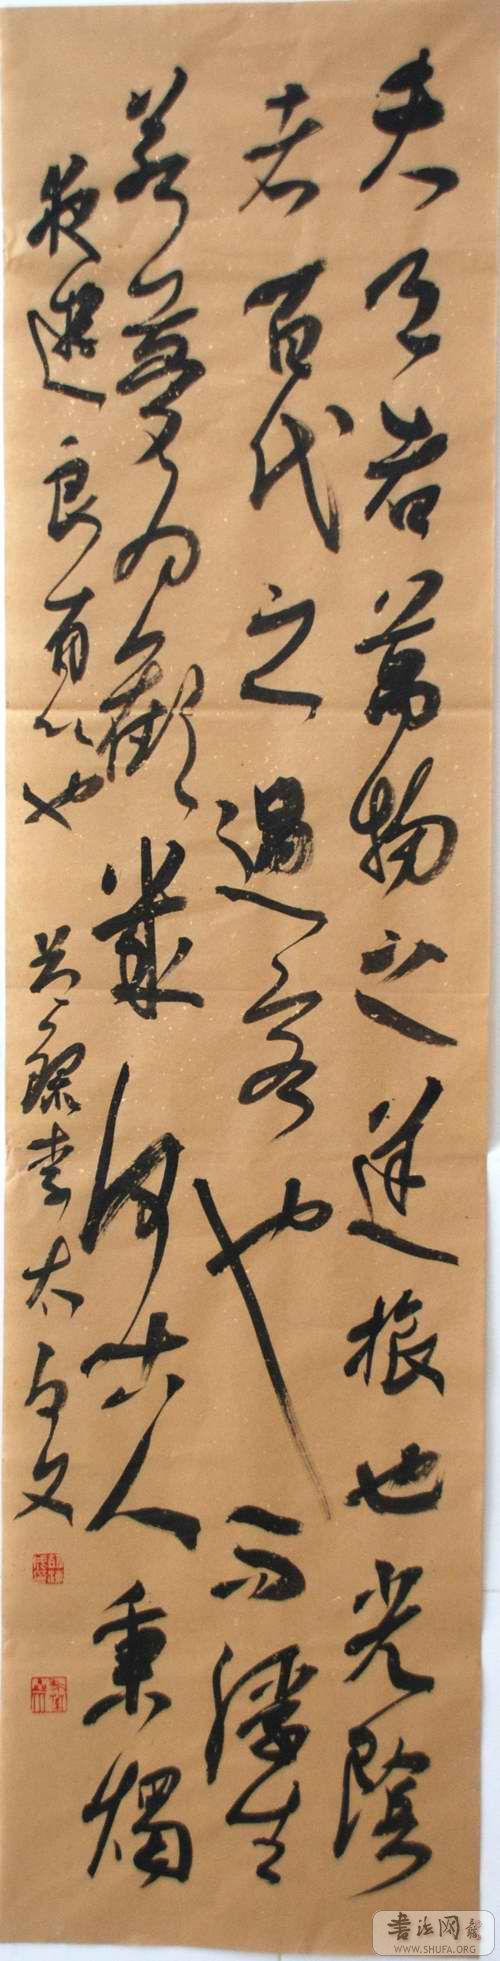 夫天者萬物之逆旅也光陰
者百代之過客也而浮生
若夢為歡幾何古人秉燭
夜遊良有以也 李太白文
書法网
WWW.SHUFA.ORG